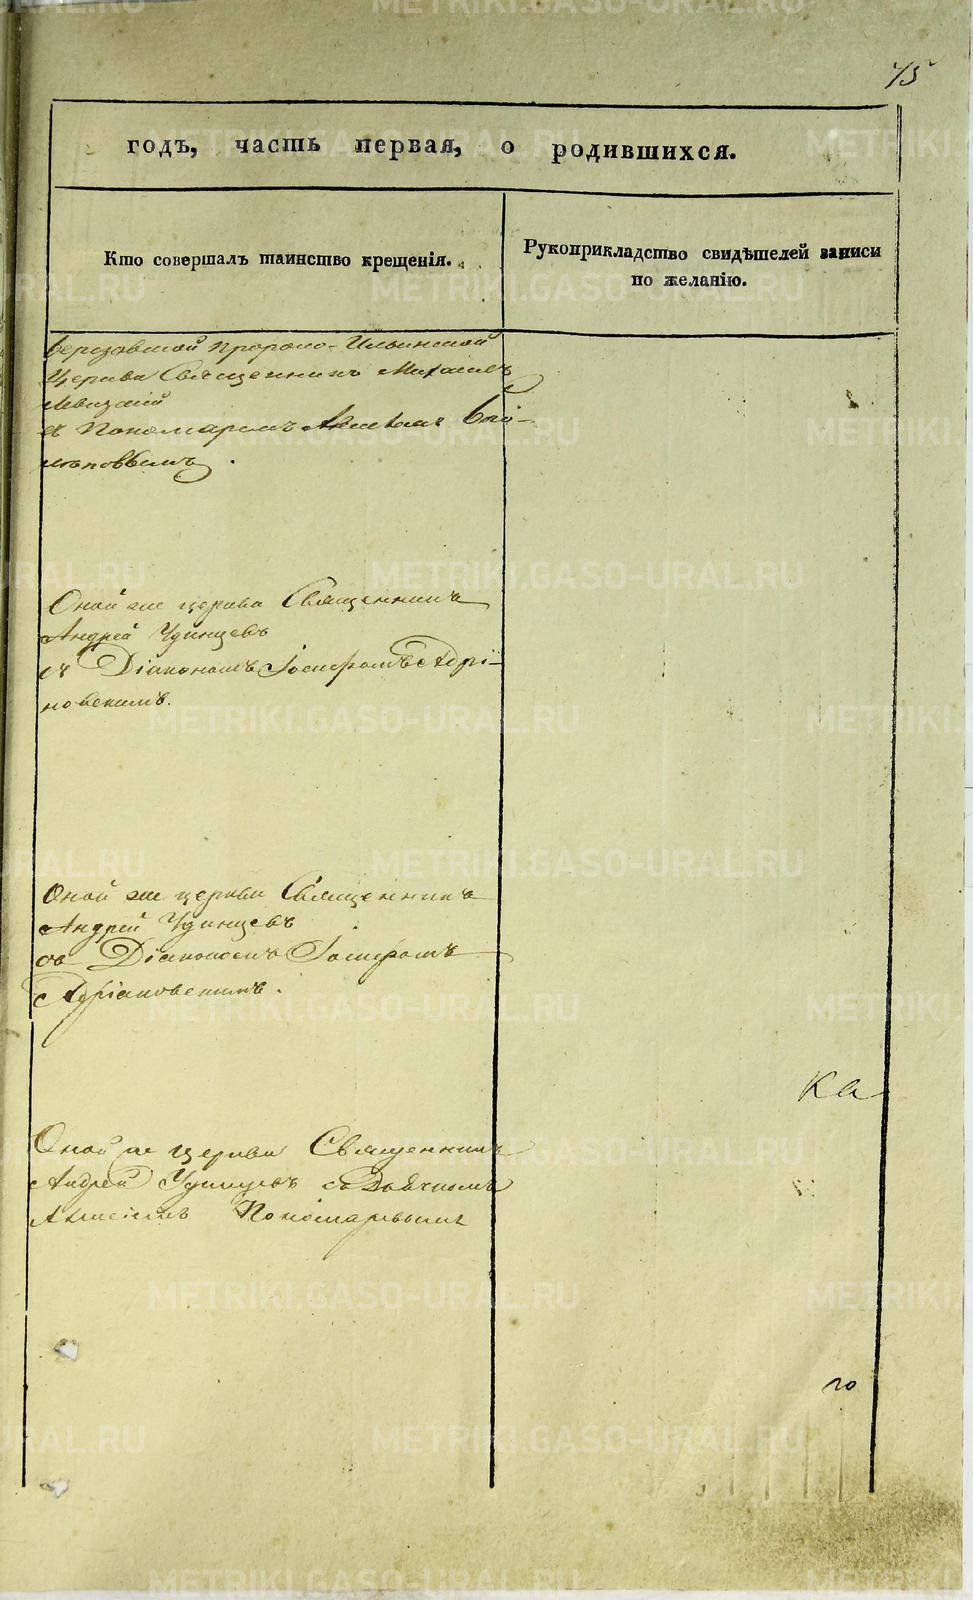 75
годъ, часть первая, о родившихся.
Кто совершалъ таинство крещенія.
Рукоприкладство свидѣтелей записи
по желанію.
Пророко-Ильинской
Церкви Священникъ Михаилъ
Левицкій
съ Пономаремъ
Оной же церкви Священникъ
Андрей Удинцевъ
съ Діакономъ Іосифомъ Адрі-
новскимъ.
Оной же церкви Священникъ
Андрей Удинцевъ
съ Діакономъ Іосифомъ
Адріановскимъ.
Ка
Оной же церкви Священникъ
Андрей Удинцевъ съ Дьячкомъ
Алексіемъ Пономаревымъ
го
METRIKI.GASO-URAL.RU